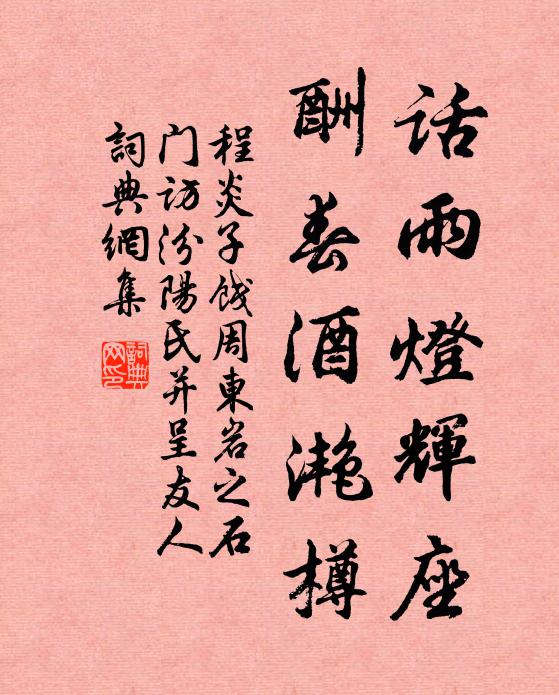 话雨燈輝座
酬春酒滟樽
程炎子饯周東岩之石
门访汾陽民并呈友人
詞典網集
詞典
网印